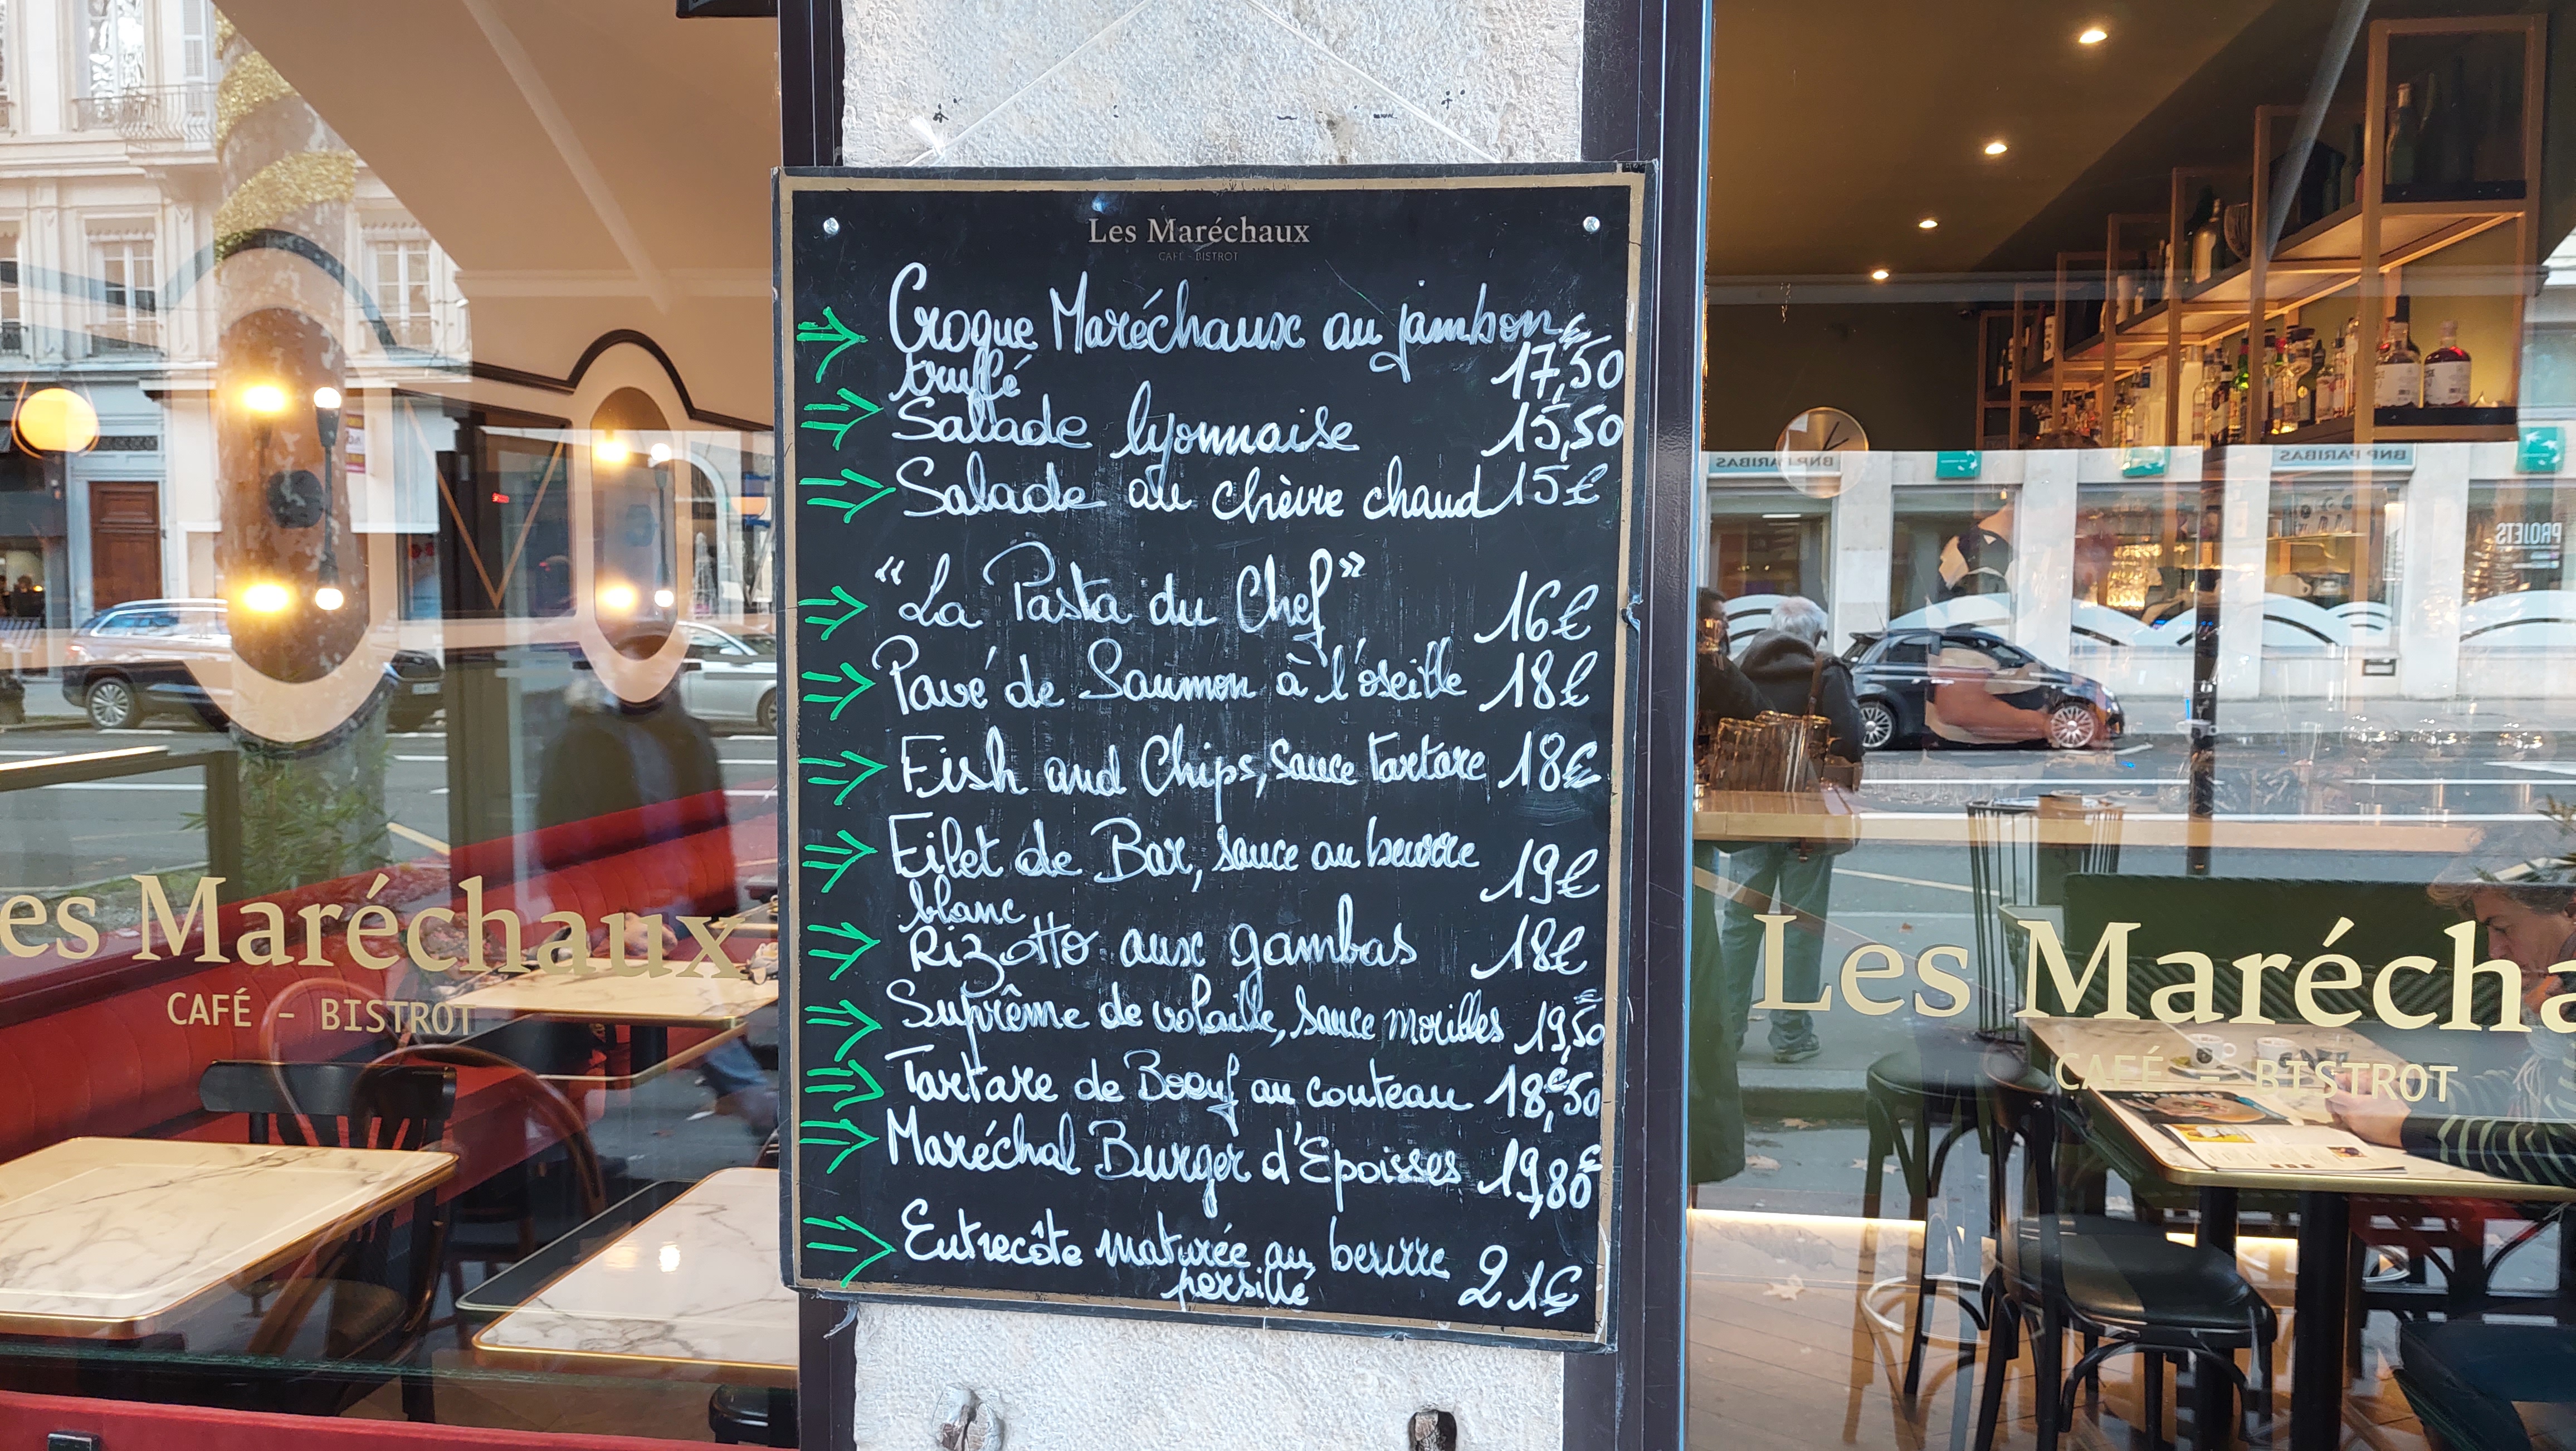 Les Maréchaux
CAFÉ - BISTROT
Croque Maréchaux au jambon
truffé 17,50€
Salade lyonnaise 15,50
Salade au chèvre chaud 15€
"La Pasta du Chef" 16€
Pavé de Saumon à l'oseille 18€
Fish and Chips, sauce tartare 18€
Filet de Bar, sauce au beurre 19€
blanc
Rizotto aux gambas 18€
Suprême de volaille, sauce morilles 19,50€
Tartare de Boeuf au couteau 18,50€
Maréchal Burger d'Epoisses 19,80€
Entrecôte maturée au beurre 21€
persillé
es Maréchaux
CAFÉ - BISTROT
Les Marécha
CAFÉ - BISTROT
BNP PARIBAS
BNP PARIBAS
PROJETS